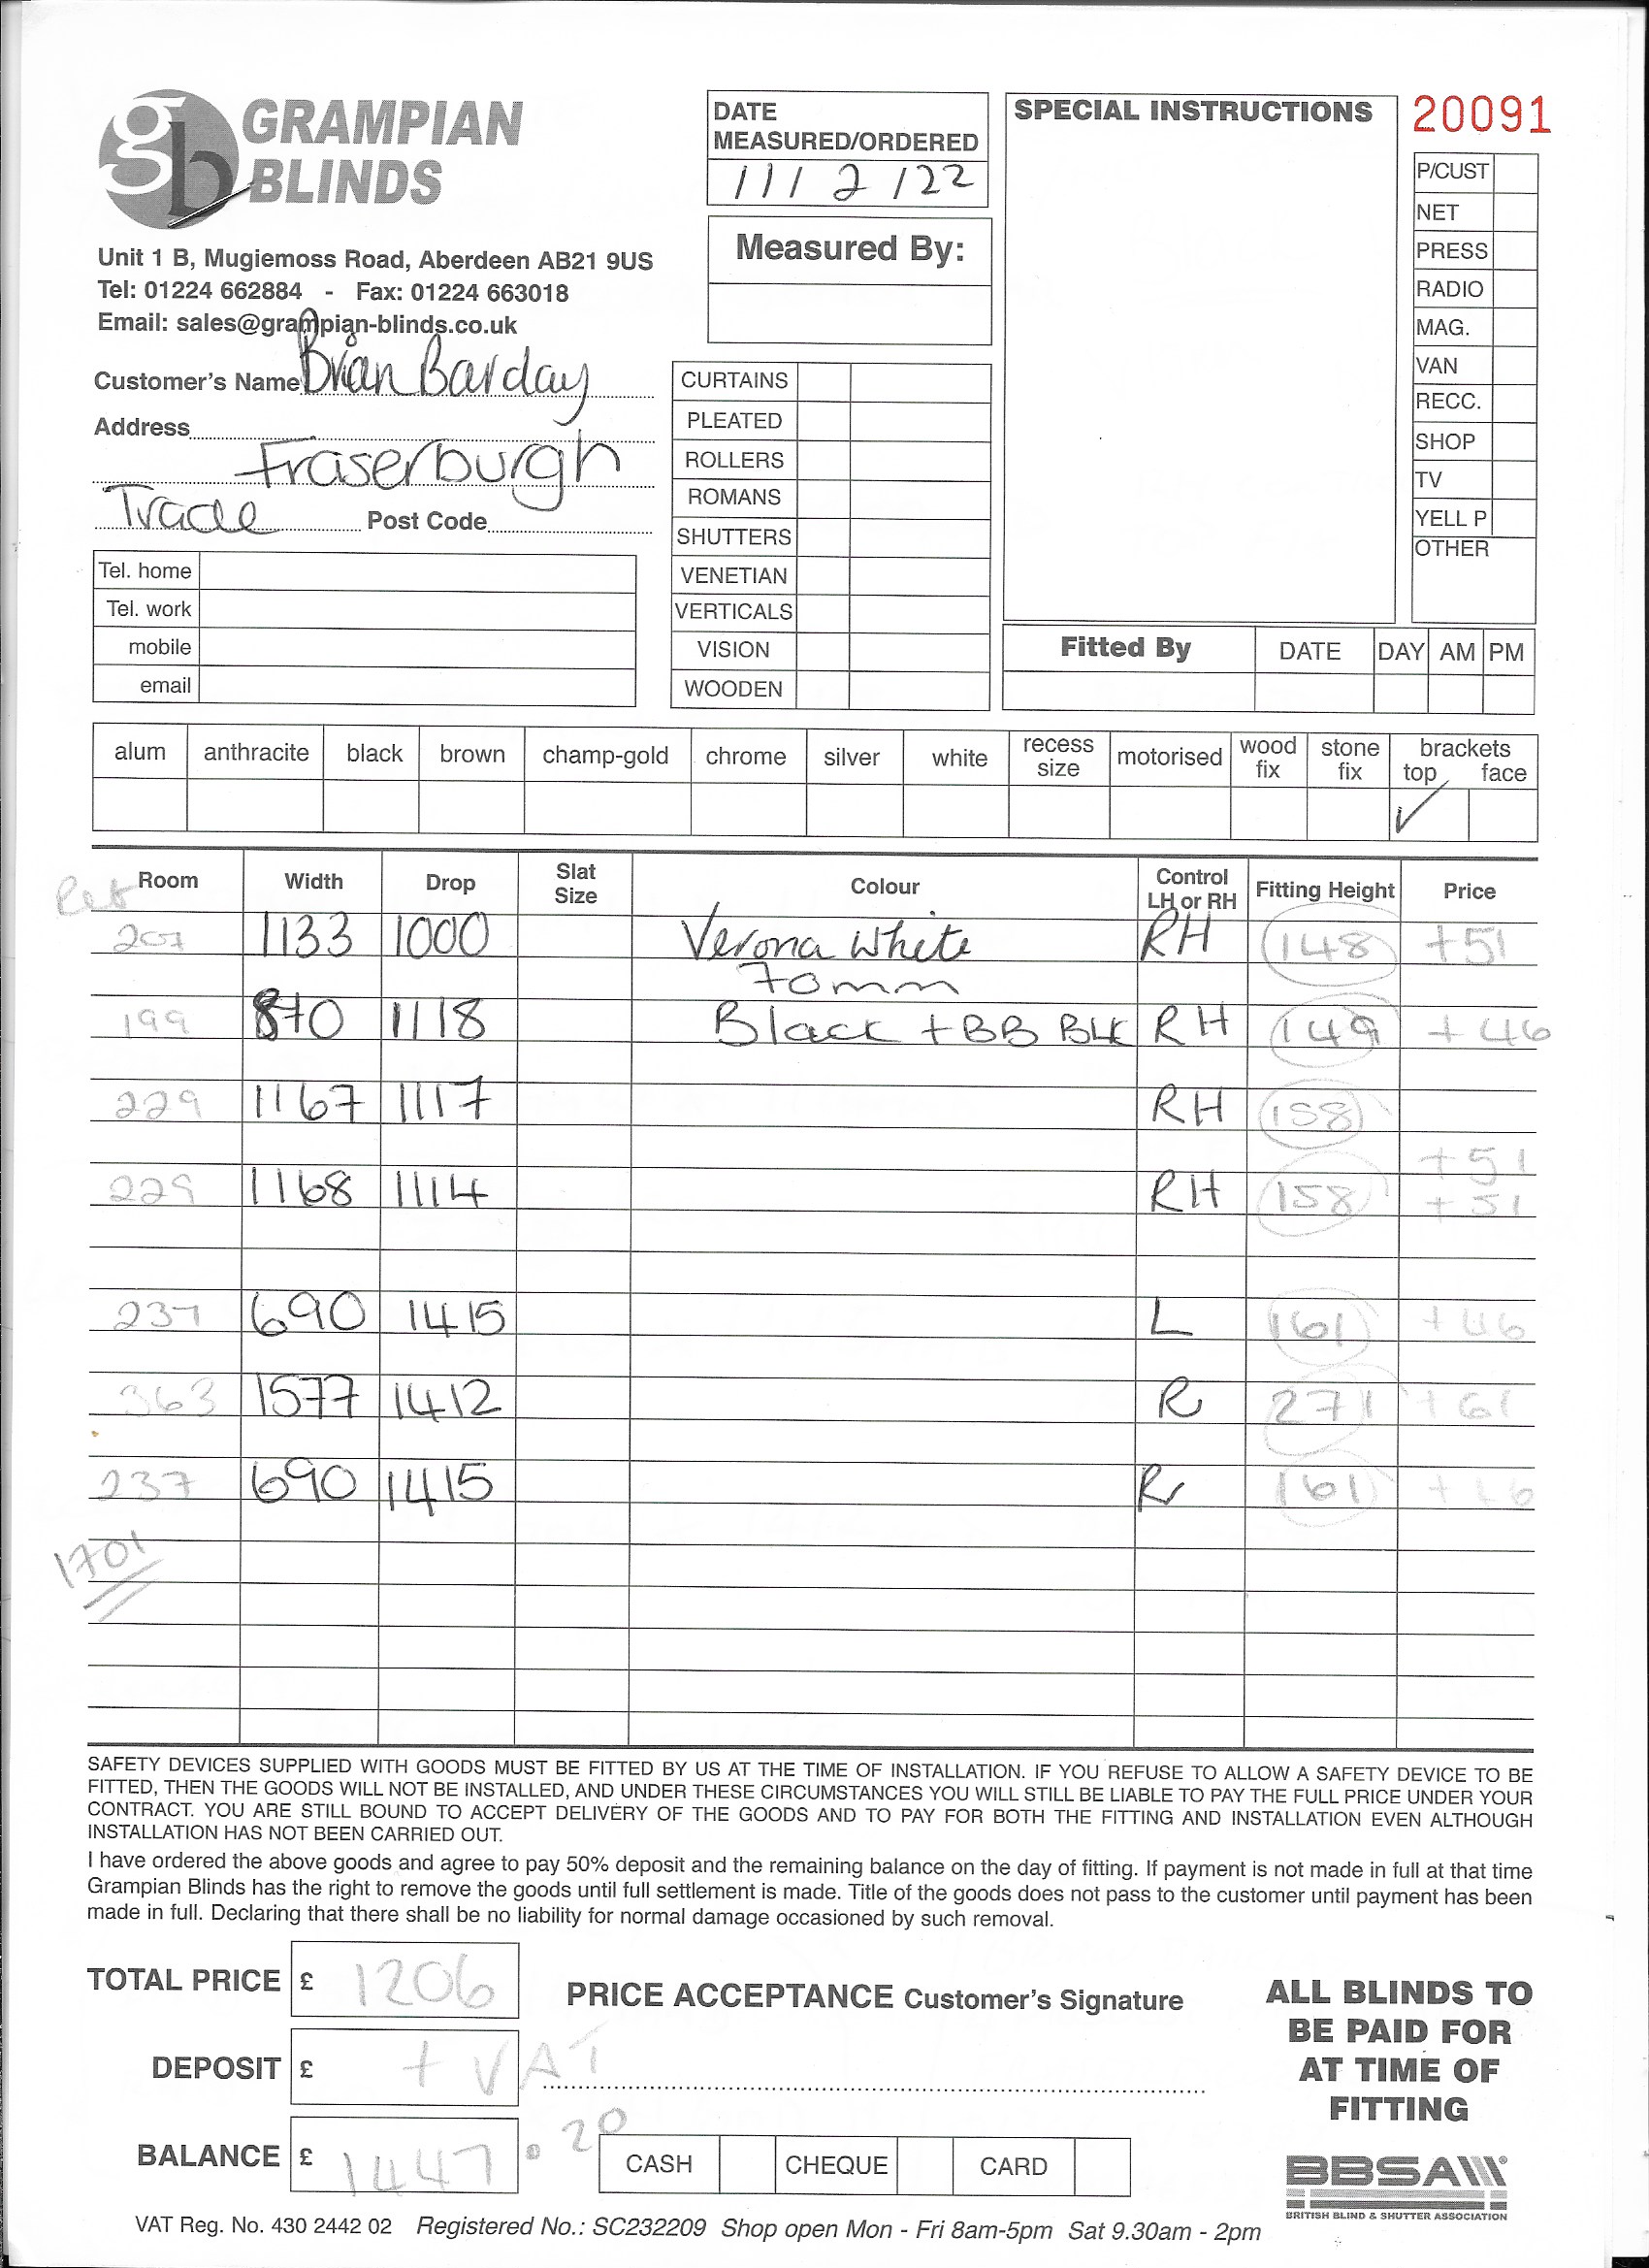 GRAMPIAN
BLINDS
Unit 1 B, Mugiemoss Road, Aberdeen AB21 9US
Tel: 01224 662884 - Fax: 01224 663018
Email: sales@grampian-blinds.co.uk
Customer's Name Brian Barclay
Address
Fraserburgh
Trade Post Code
Tel. home
Tel. work
mobile
email
DATE
MEASURED/ORDERED
11/2/22
Measured By:
CURTAINS
PLEATED
ROLLERS
ROMANS
SHUTTERS
VENETIAN
VERTICALS
VISION
WOODEN
SPECIAL INSTRUCTIONS
20091
P/CUST
NET
PRESS
RADIO
MAG.
VAN
RECC.
SHOP
TV
YELL P
OTHER
Fitted By DATE DAY AM PM
alum anthracite black brown champ-gold chrome silver white recess size motorised wood fix stone fix brackets top face
✓
Ret Room Width Drop Slat Size Colour Control LH or RH Fitting Height Price
207 1133 1000 Verona White RH 148 +51
70mm
199 870 1118 Black + BB BLK RH 149 +46
229 1167 1117 RH 158
+51
229 1168 1114 RH 158 +51
237 690 1415 L 161 +46
363 1577 1412 R 271 +61
237 690 1415 R 161 +46
1701
SAFETY DEVICES SUPPLIED WITH GOODS MUST BE FITTED BY US AT THE TIME OF INSTALLATION. IF YOU REFUSE TO ALLOW A SAFETY DEVICE TO BE
FITTED, THEN THE GOODS WILL NOT BE INSTALLED, AND UNDER THESE CIRCUMSTANCES YOU WILL STILL BE LIABLE TO PAY THE FULL PRICE UNDER YOUR
CONTRACT. YOU ARE STILL BOUND TO ACCEPT DELIVERY OF THE GOODS AND TO PAY FOR BOTH THE FITTING AND INSTALLATION EVEN ALTHOUGH
INSTALLATION HAS NOT BEEN CARRIED OUT.
I have ordered the above goods and agree to pay 50% deposit and the remaining balance on the day of fitting. If payment is not made in full at that time
Grampian Blinds has the right to remove the goods until full settlement is made. Title of the goods does not pass to the customer until payment has been
made in full. Declaring that there shall be no liability for normal damage occasioned by such removal.
TOTAL PRICE £ 1206
DEPOSIT £ + VAT
BALANCE £ 1447.20
PRICE ACCEPTANCE Customer's Signature
CASH CHEQUE CARD
ALL BLINDS TO
BE PAID FOR
AT TIME OF
FITTING
BBSA
BRITISH BLIND & SHUTTER ASSOCIATION
VAT Reg. No. 430 2442 02 Registered No.: SC232209 Shop open Mon - Fri 8am-5pm Sat 9.30am - 2pm